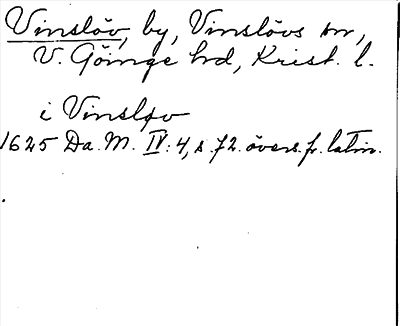 Vinslöv, by, Vinslövs sn,
V. Göinge hd, Krist. l.
i Vinsløv
1625 Da. M. IV: 4, s. 72. övers. fr. latin.